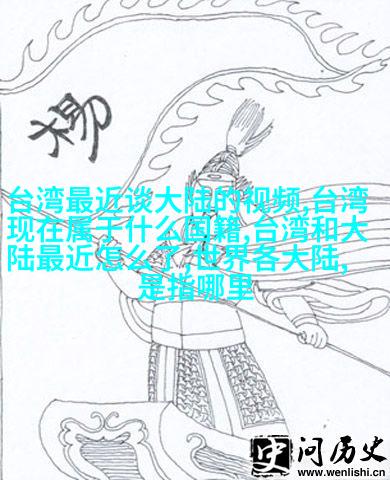 杨
台湾最近谈大陆的视频,台湾
现在属于什么国籍,台湾和大
陆最近怎么了,世界各大陆,
是指哪里
史问历史
www.wenlishi.cn